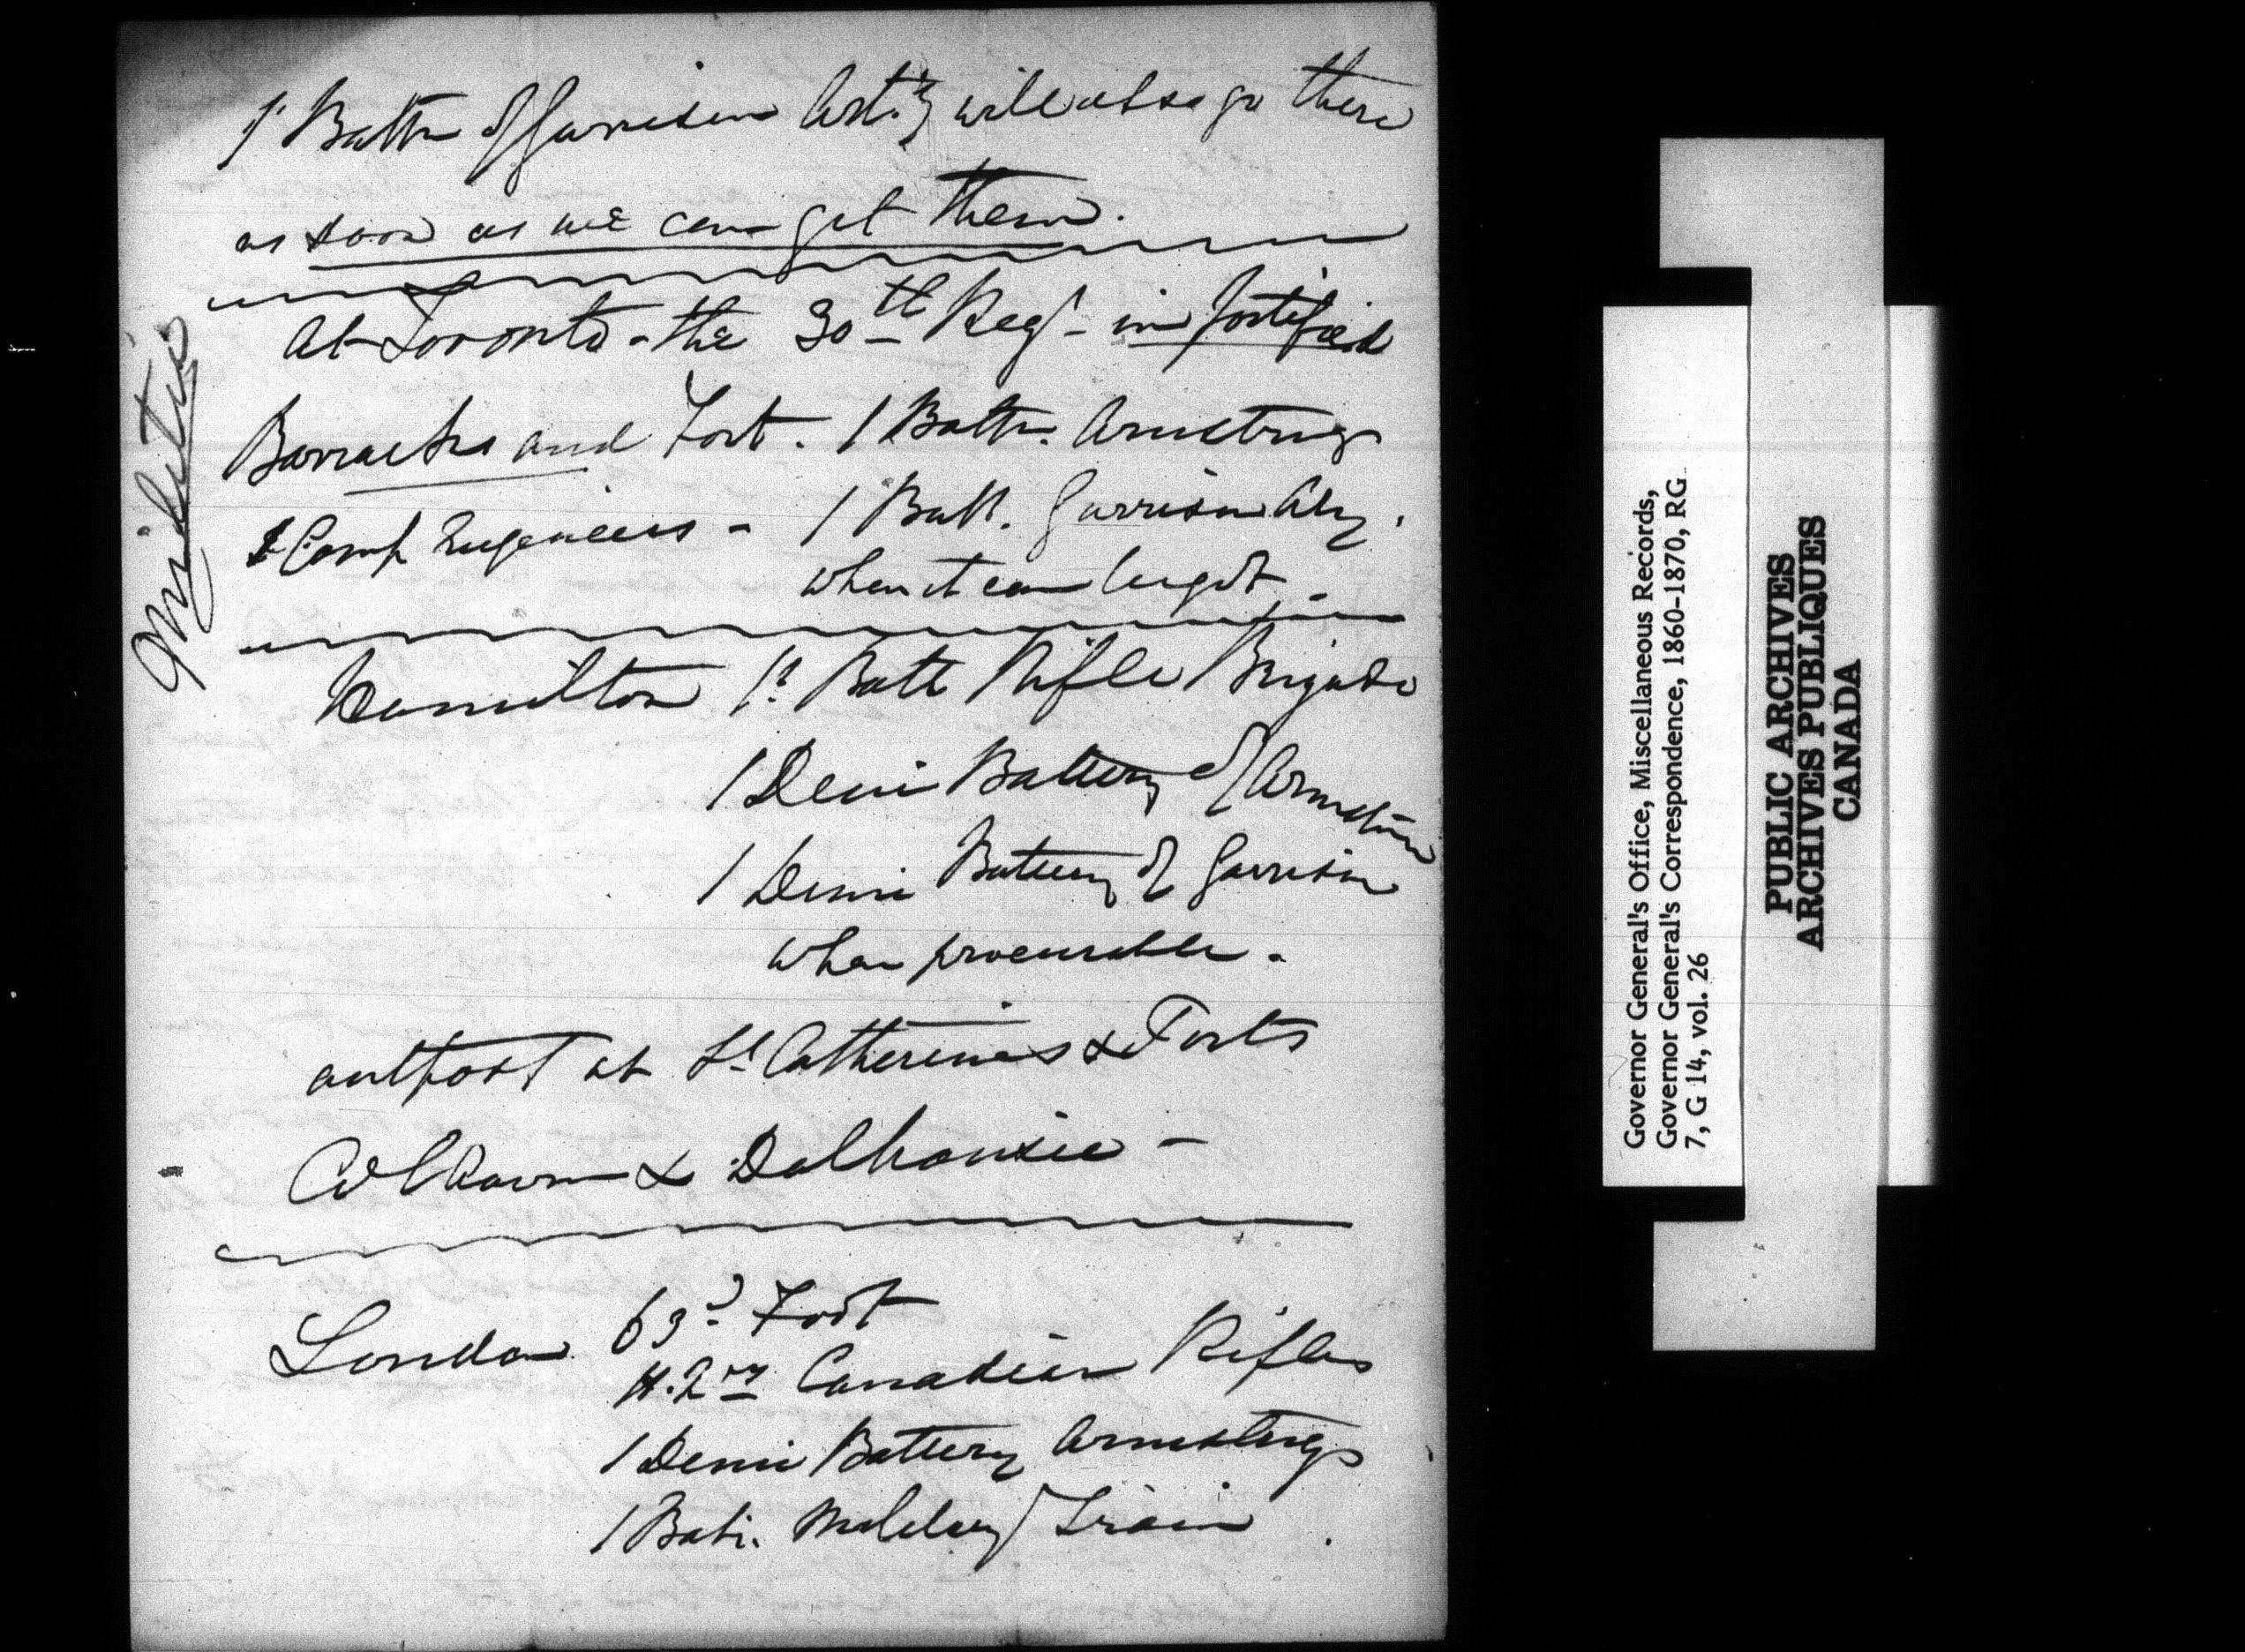 1 Battn of Garrison Arty will also go there
as soon as we can get them.
At Toronto - the 30th Regt - in fortified
Barracks and Fort. 1 Battn. Armstrong
1 Comp Engineers - 1 Batt. Garrison Aty.
when it can be got
Hamilton 1st Batt Rifle Brigade
1 Demi Battery of Armstron
1 Demi Battery of Garrison
when procurable.
outpost at St Catherines & Forts
Colborn & Dalhousie -
London 63d Foot
H.2 Canadian Rifles
1 Demi Battery Armstrongs
1 Batt. Military Train
Militia
Governor General's Office, Miscellaneous Records,
Governor General's Correspondence, 1860-1870, RG
7, G 14, vol. 26
PUBLIC ARCHIVES
ARCHIVES PUBLIQUES
CANADA